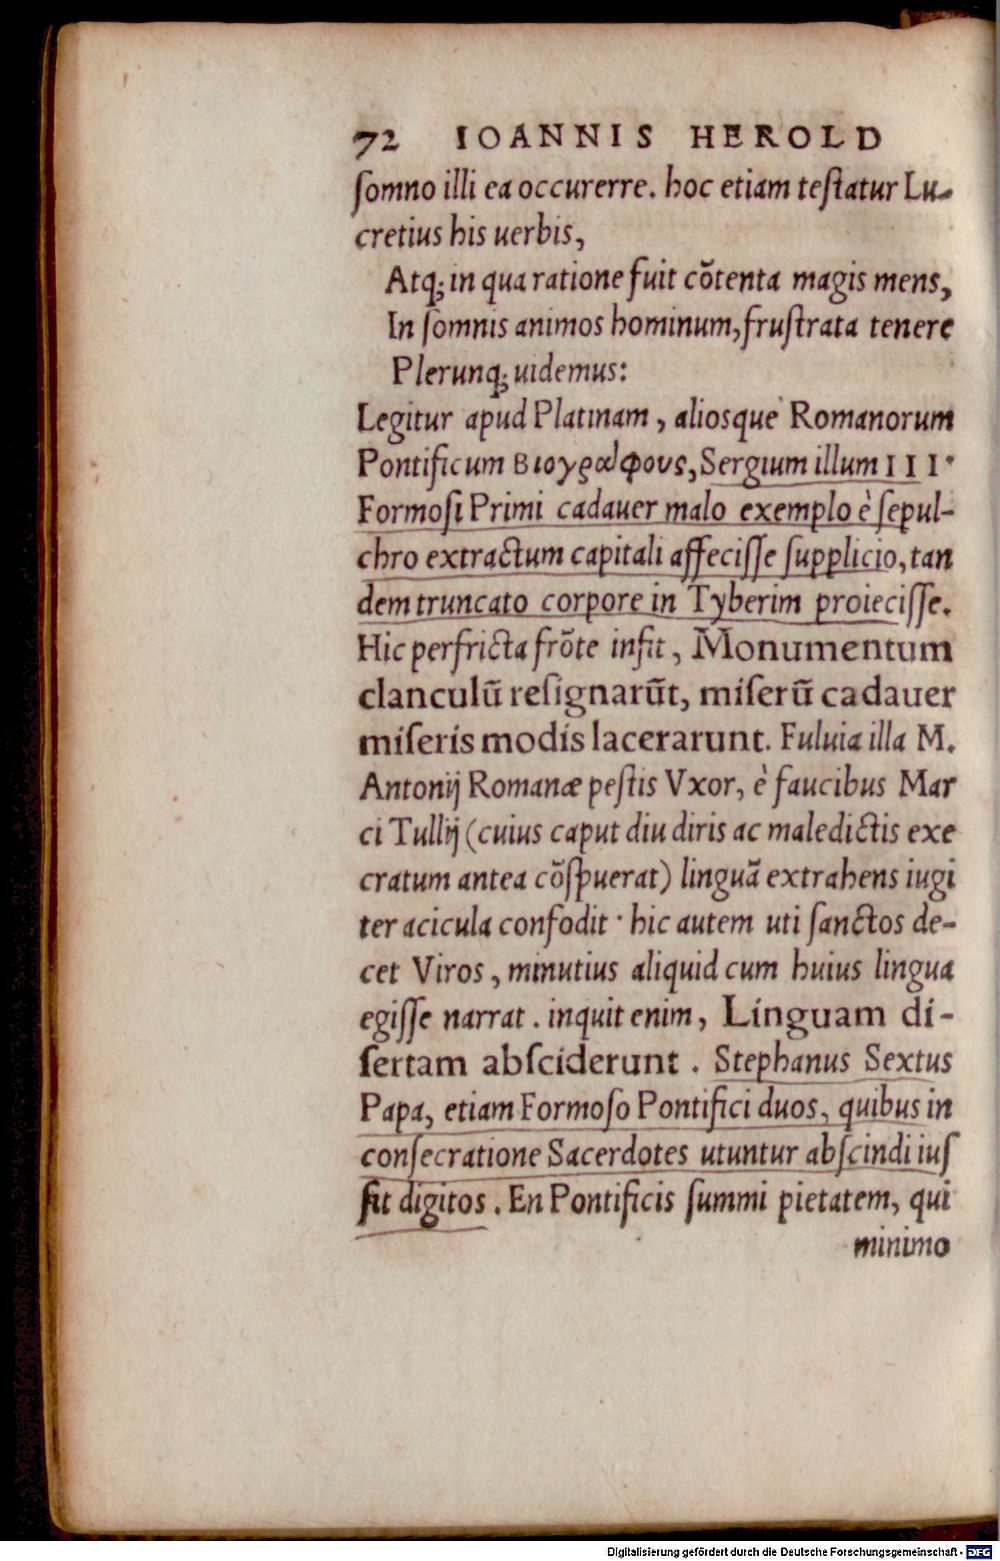 72 IOANNIS HEROLD
ſomno illi ea occurerre. hoc etiam teſtatur Lu-
cretius his uerbis,
Atq; in qua ratione fuit cōtenta magis mens,
In ſomnis animos hominum, fruſtrata tenere
Plerunq; uidemus:
Legitur apud Platinam, aliosque Romanorum
Pontificum Βιογράφους, Sergium illum III·
Formoſi Primi cadauer malo exemplo è ſepul-
chro extractum capitali affeciſſe ſupplicio, tan
dem truncato corpore in Tyberim proieciſſe.
Hic perfricta frōte inſit, Monumentum
clanculū reſignarūt, miſerū cadauer
miſeris modis lacerarunt. Fuluia illa M.
Antonij Romanæ peſtis Vxor, è faucibus Mar
ci Tullij (cuius caput diu diris ac maledictis exe
cratum antea cōſpuerat) linguā extrahens iugi
ter acicula confodit · hic autem uti ſanctos de-
cet Viros, minutius aliquid cum huius lingua
egiſſe narrat. inquit enim, Linguam di-
ſertam abſciderunt. Stephanus Sextus
Papa, etiam Formoſo Pontifici duos, quibus in
conſecratione Sacerdotes utuntur abſcindi iuſ
ſit digitos. En Pontificis ſummi pietatem, qui
minimo
Digitalisierung gefördert durch die Deutsche Forschungsgemeinschaft - DFG